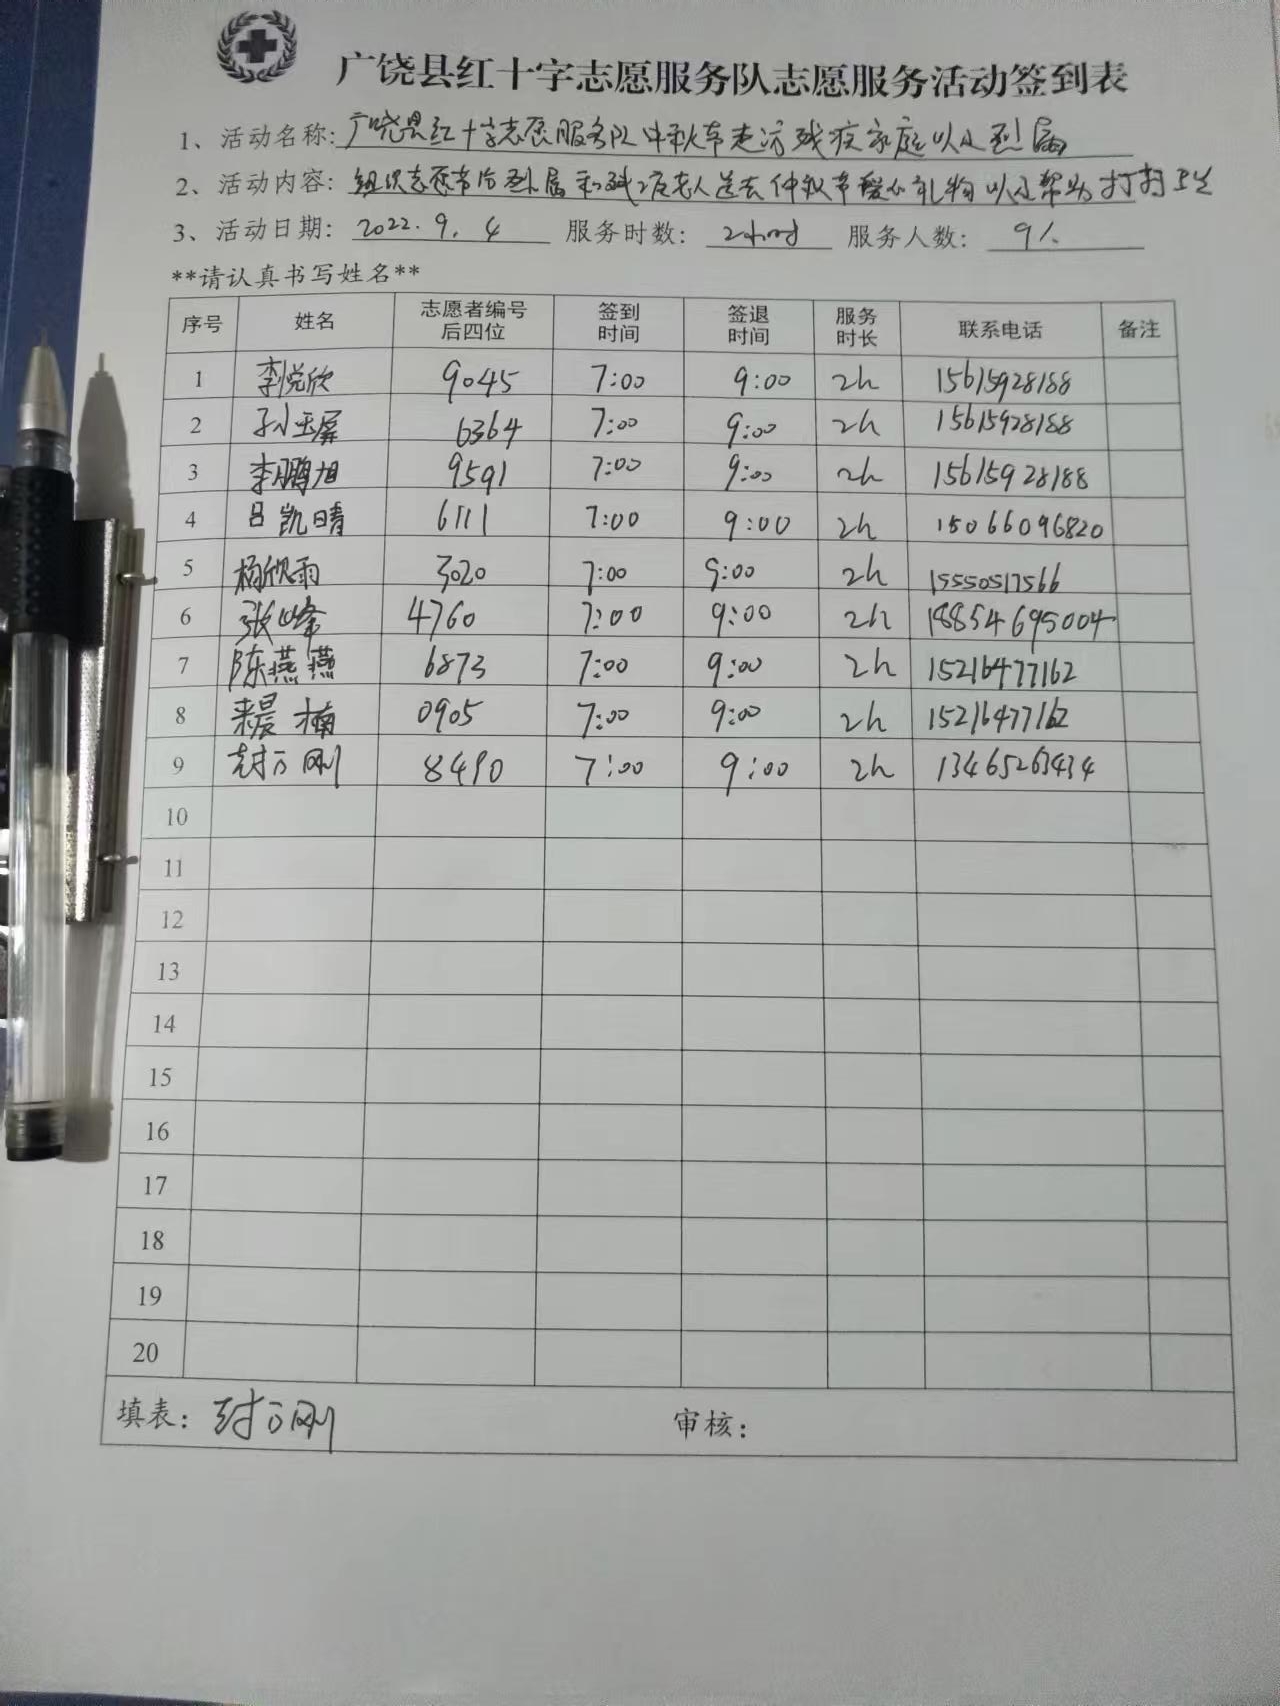 广饶县红十字志愿服务队志愿服务活动签到表
1、活动名称: 广饶县红十字志愿服务队中秋节走访残疾家庭以及烈属
2、活动内容: 组织志愿者给烈属和残疾老人送去仲秋节爱心礼物以及帮助打扫卫生
3、活动日期: 2022.9.4 服务时数: 2小时 服务人数: 9人
**请认真书写姓名**
序号 姓名 志愿者编号后四位 签到时间 签退时间 服务时长 联系电话 备注
1 李悦欣 9045 7:00 9:00 2h 15615928188
2 孙玉屏 6364 7:00 9:00 2h 15615928188
3 李鹏旭 9591 7:00 9:00 2h 15615928188
4 吕凯晴 6111 7:00 9:00 2h 15066096820
5 杨欣雨 3020 7:00 9:00 2h 15550517566
6 张峰 4760 7:00 9:00 2h 18854695004
7 陈燕燕 6873 7:00 9:00 2h 15216477162
8 来晨楠 0905 7:00 9:00 2h 15216477162
9 封万刚 8490 7:00 9:00 2h 13465263434
10
11
12
13
14
15
16
17
18
19
20
填表: 封万刚 审核: